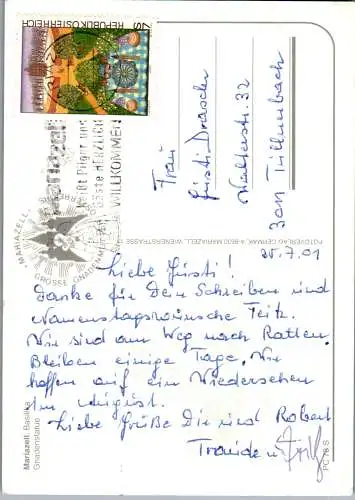 REPUBLIK ÖSTERREICH
7S
MARIAZELL
heißt Pilger und
Gäste HERZLICH
WILLKOMMEN
GROSSE GNADENMUTTER
Frau
Gusti Drascher
Walterstr. 32
3011 Tullnerbach
FOTOVERLAG GERMANK, A-8630 MARIAZELL, WIENERSTRASSE
25.7.01
Liebe Gusti!
Danke für Dein Schreiben und
Namenstagswünsche Feitz.
Wir sind am Weg nach Ratten.
Bleiben einige Tage. Wir
hoffen auf ein Wiedersehen
im August.
Liebe Grüße Dir und Robert
Traude u.
Mariazell, Basilika
Gnadenstatue
PC 78 S